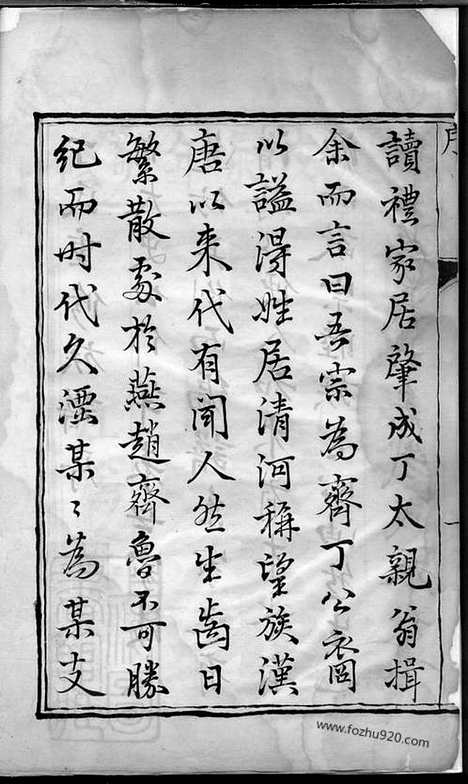 讀禮家居肇成丁太親翁揖
余而言曰吾宗為齊丁公裔
以謚得姓居清河稱望族漢
唐以来代有聞人然生齒日
繁散處於燕趙齊魯不可勝
紀而时代久湮某〻為某支
www.fozhu920.com